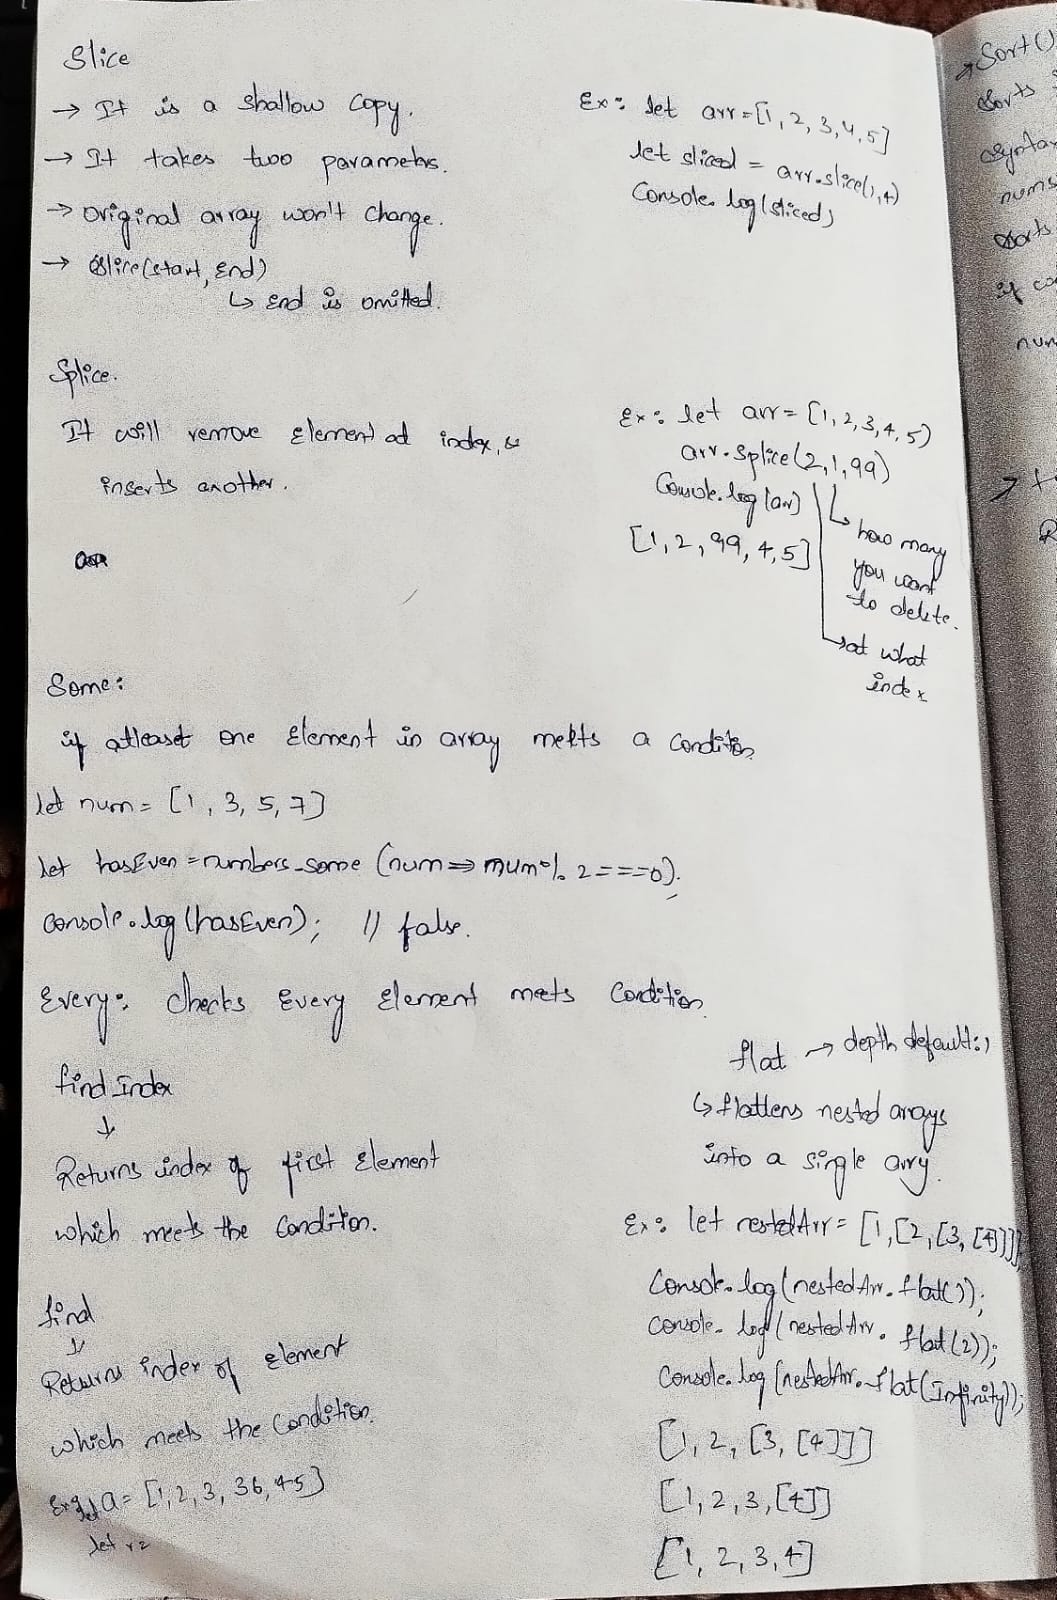 Slice
→ It is a shallow copy.
→ It takes two parameters.
→ Original array won't change.
→ Slice(start, End)
↳ End is omitted.
Ex: let arr=[1, 2, 3, 4, 5]
let sliced = arr.slice(1,4)
Console.log(sliced)
Splice.
It will remove Element at index, &
inserts another.
Ex: let arr= [1, 2, 3, 4, 5)
arr.splice(2,1,99)
Console.log(arr)
[1, 2, 99, 4, 5]
↳ how many
you want
to delete.
→ at what
index
Some:
if atleast one Element in array meets a condition
let num = [1, 3, 5, 7]
let hasEven = numbers.some (num => num % 2 === 0).
Console.log(hasEven); // false.
Every: checks Every Element meets Condition
findIndex
↓
Returns index of first Element
which meets the Condition.
find
↓
Returns index of Element
which meets the Condition.
a= [1, 2, 3, 36, 45]
let
flat → depth default:1
↳ flattens nested arrays
into a single arry.
Ex: let nestedArr = [1,[2,[3,[4]]]]
Console.log(nestedArr.flat());
Console.log(nestedArr.flat(2));
Console.log(nestedArr.flat(Infinity));
[1, 2, [3, [4]]]
[1, 2, 3, [4]]
[1, 2, 3, 4]
→ Sort()
Sorts
nums
Sorts
if